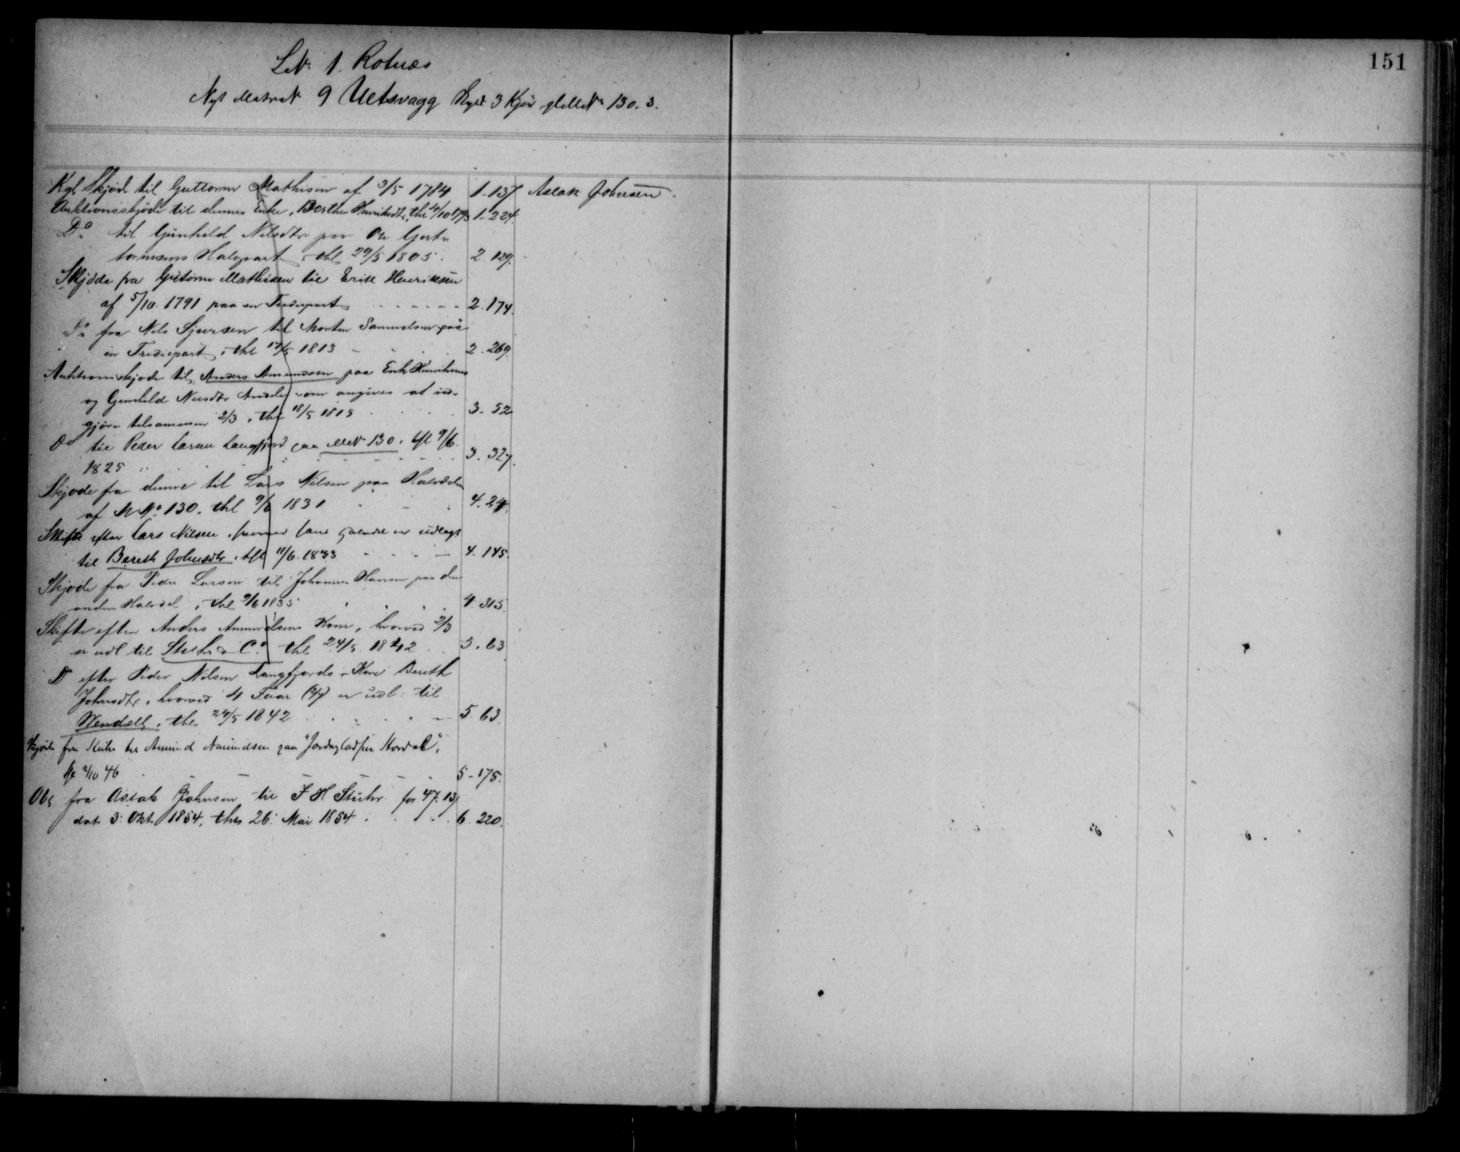 151
LN 1. Rotnæs
Nyt MatrN 9 Uctsvagg Skyld 3 Kjør glMN 130. 3.
Kgl. Skjøde til Guttorm Mathisen af 3/5 1784 1.137 Aslak Johnsen.
Auktionsskjøde til dennes Enke, Berthe Henriksdtr, thl 1.224
Do til Gunhild Nilsdtr paa Ole
Halvpart, thl 29/5 1805. 2 129.
Skjøde fra Guttorm Mathisen til Erik Henriksen
af 5/10 1791 paa en Trediepart 2.174.
Do fra Nils Sjursen til Morten Samuelsen paa
en Trediepart, thl 1813 2.269.
Auktionsskjøde til Anders Amundsen paa Erik Henriksens
og Gunhild Nilsdtr Andele, som angives at ud-
gjøre tilsammen 2/3, thl 18/5 1815 3. 52
Do til Peder Larsen Langfjord paa MN 130. thl 9/6
1825 3. 327.
Skjøde fra denne til Lars Nilsen paa Halvdelen
af MNo 130. thl 9/6 1831 4.24.
Skifte efter Lars Nilsen, er udlagt
til Bereth Johnsdtr, thl 11/6 1833 4. 145.
Skjøde fra Peder Larsen til Johannes Hansen paa den
anden Halvdel, thl 9/6 1835 4.315.
Skifte efter Anders Amundsens Kone, hvorved 2/3
er udl til Stuhr & Co. thl 24/5 1842 5.63
Do efter Peder Nilsen Langfjords Kone Bereth
Johnsdtr, hvorved 4 er udl: til
Wendell, thl 24/5 1842 5 63.
Skjøde fra Stuhr til Amund Amundsen paa "Jordagladsen Nordal",
46 5-175.
Obl fra Aslak Johnsen til F H Stuhr for 47. 13
dat. 3. Okt 1854, thl 26. Mai 1854 6.220.